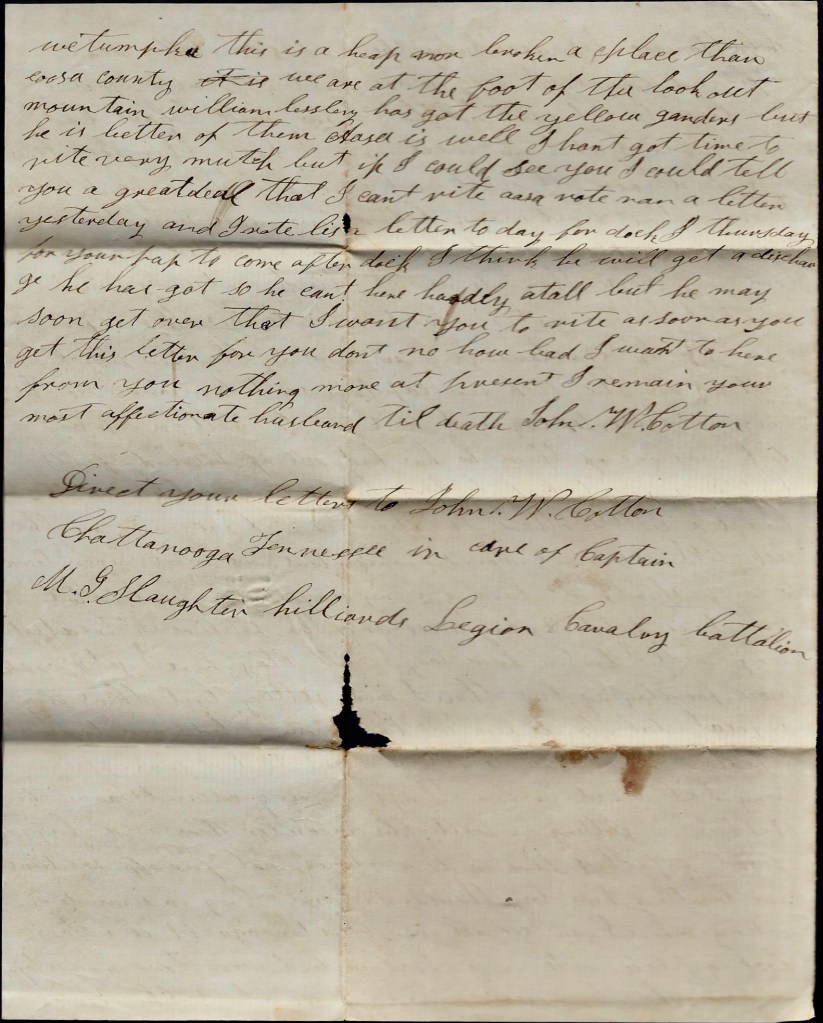 wetumpka this is a heap mor broken a place than
coosa county it is we are at the foot of the look out
mountain william lessley has got the yellow ganders but
he is better of them asa is well I hant got time to
rite very mutch but if I could see you I could tell
you a great deal that I cant rite asa rote nan a letter
yesterday and I rote a letter to day for dock
for your pap to come after dock I think he will get a dischar
ge he has got so he cant here hardly atall but he may
soon get over that I want you to rite as soon as you
get this letter for you dont no how bad I want to here
from you nothing more at present I remain your
most affectionate husband til death John W. Cotton
Direct your letters to John W. Cotton
Chattanooga Tennessee in care of Captain
M. G. Slaughter hilliards Legion Cavalry battalion